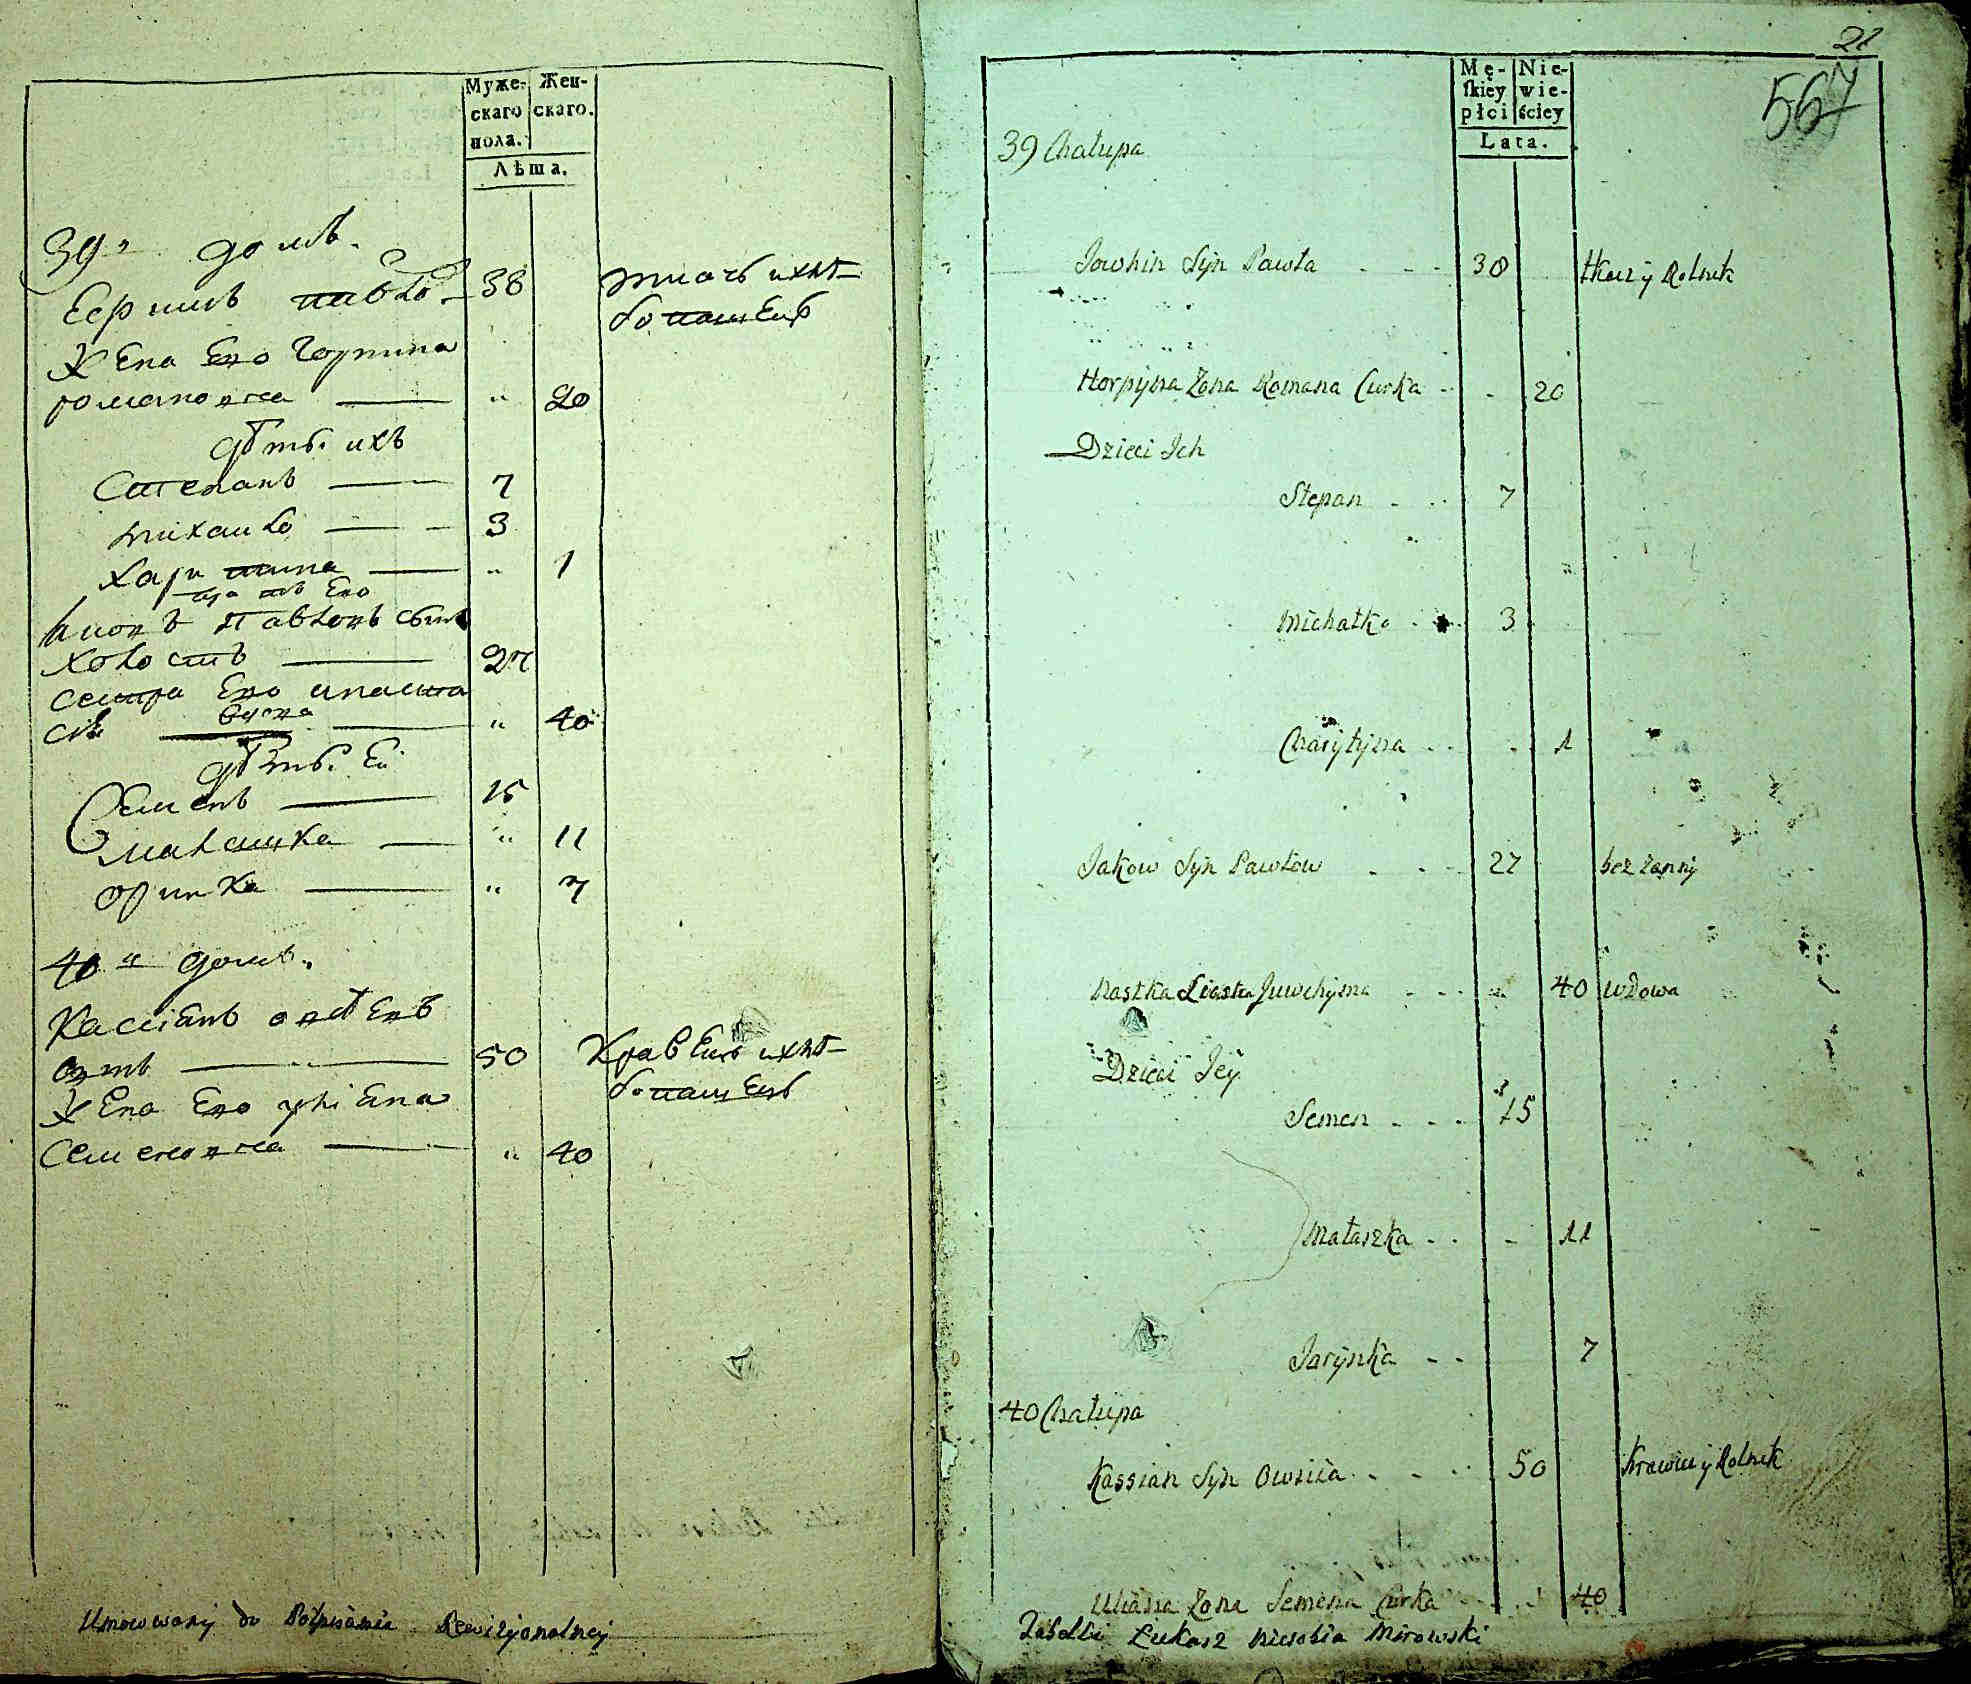 Муже-
скаго
пола.
Жен-
скаго.
Лѣта.
39" домъ.
38
ткачь и хлѣ-
бопашецъ
Жена Его Горпина
романовна — " 20
дѣти ихъ
Степанъ — 7
михайло — 3
Харитина — " 1
братъ Его
Яковъ Павловъ сынъ
холостъ — 27
сестра Его анаста
сія вдова — " 40
дѣти Еі
Семенъ — 15
малашка — " 11
оринка — " 7
40" домъ.
Кассіанъ
50
Кравецъ и хлѣ-
бопашецъ
Жена Его уліана
Семеновна — " 40
Umocowany do Podpisania Rewizyonalney
21
567
Mę-
skiey
płci
Nie-
wie-
ściey
Lata.
39 Chałupa
Jowhin Syn Pawła - - - 38 tkacz y Rolnik
Horpyna Zona Romana Curka - - 20
Dzieci Ich
Stepan - - - 7
Michałko - - 3
Charytyna - - - 1
Jakow Syn Pawłow - - - 27 bez żonny
Nastka Siostra Juwchyma - - - 40 wdowa
Dzieci Jey
Semen - - - 15
Małaszka - - - 11
Jarynka - - 7
40 Chałupa
Kassian Syn - - - 50 Krawiec y Rolnik
Uliana Zona Semena Curka - - - 40
Tabelli Łukasz Mirowski